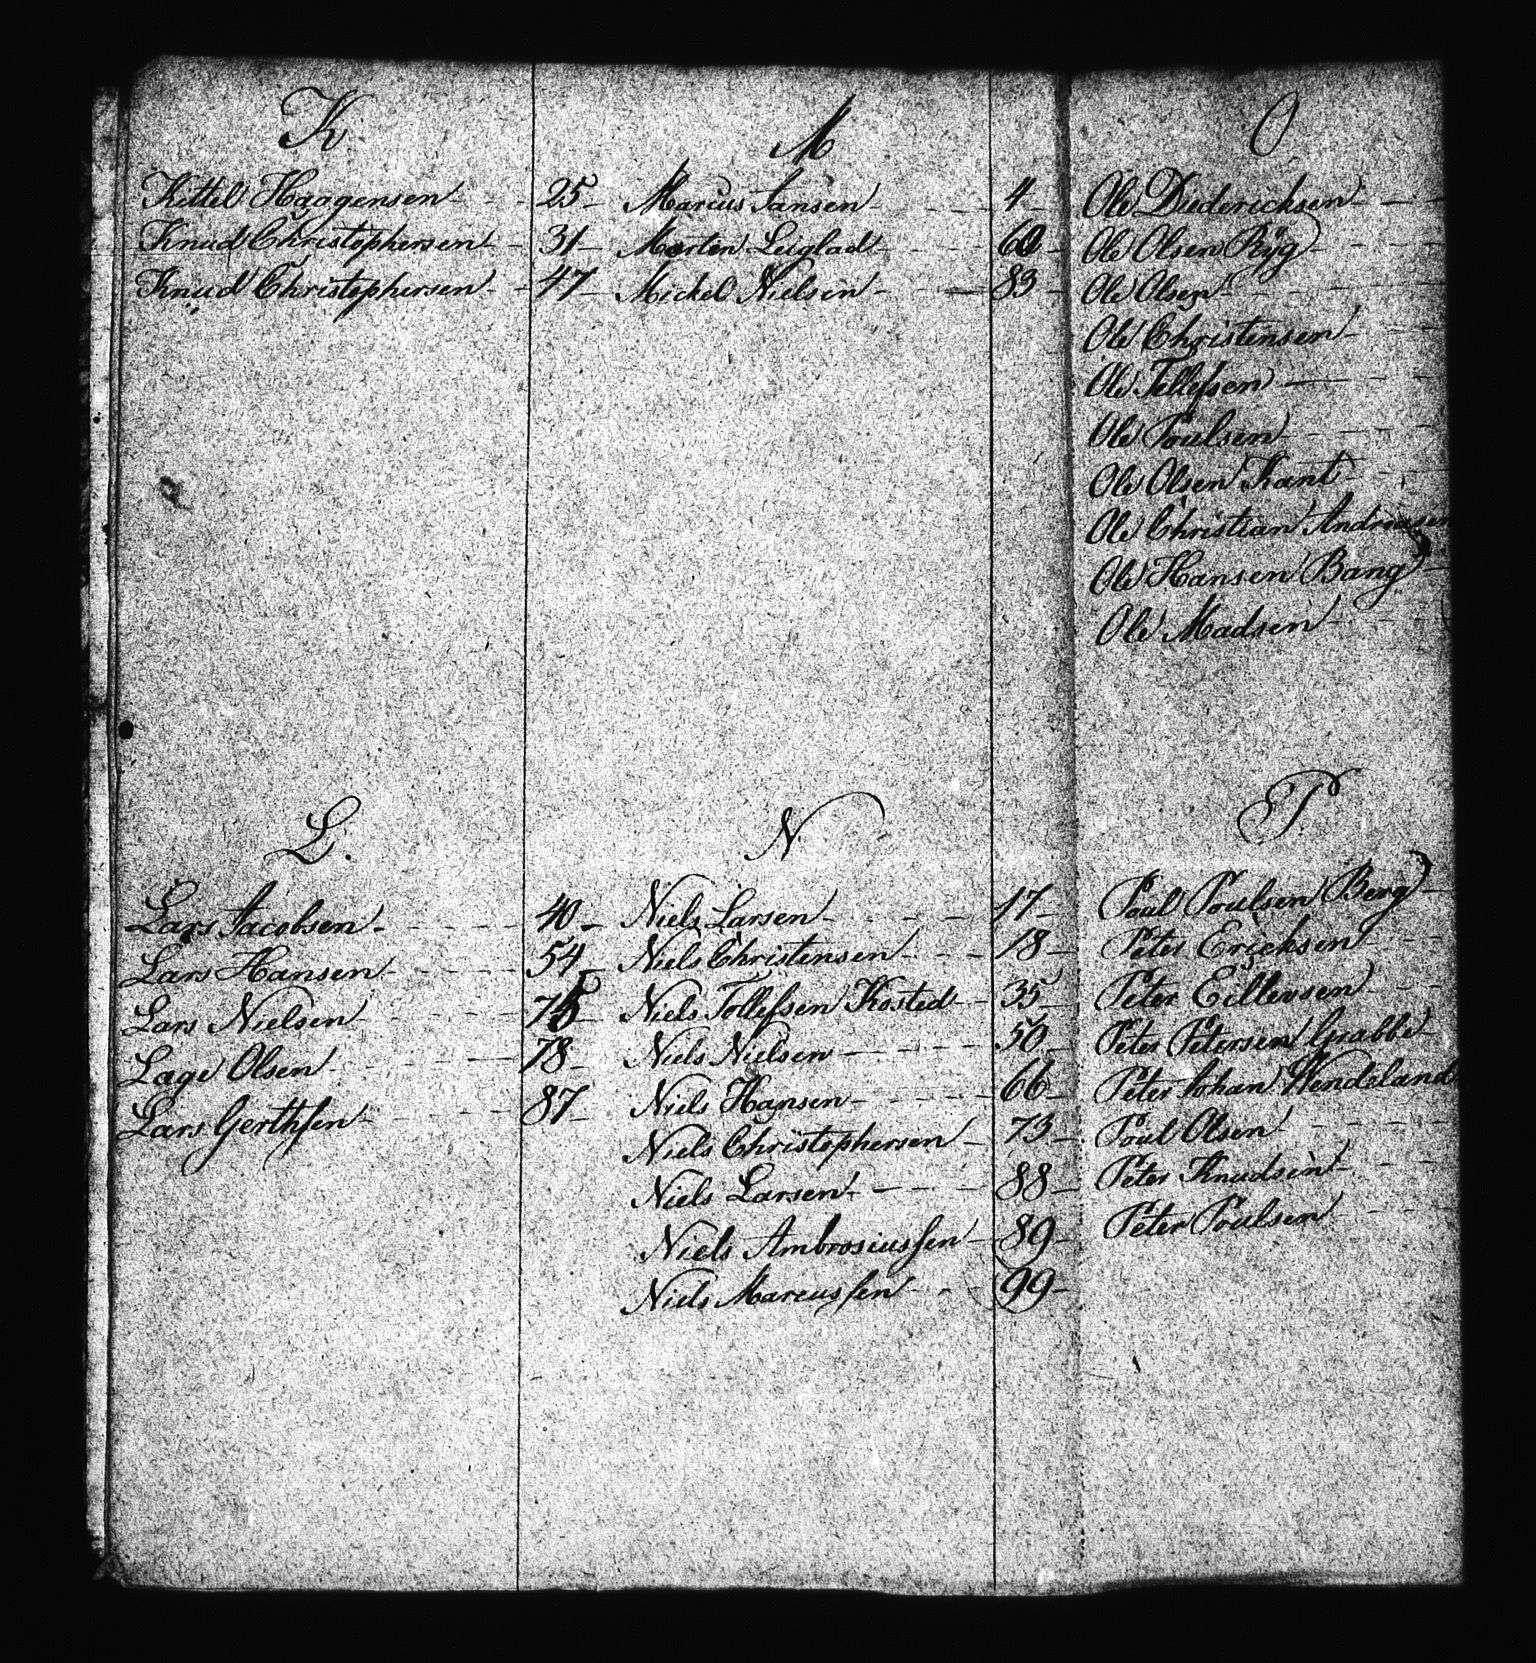 K.
Kittel Haagensen - - - 25 -
Knud Christophersen - - 31 -
Knud Christophersen - - 47 -
L.
Lars Jacobsen - - - - - 40 -
Lars Hansen - - - - - 54 -
Lars Nielsen - - - - - 75 -
Lage Olsen - - - - - 78 -
Lars Gerthsen - - - - 87 -
M
Marcus Jansen - - - - 4 -
Morten Leiglad - - - - 60 -
Mickel Nielsen - - - - 83 -
N.
Niels Larsen - - - - - 17 -
Niels Christensen - - - 18 -
Niels Tollefsen Kosted - 35 -
Niels Nielsen - - - - 50 -
Niels Hansen - - - - 66 -
Niels Christophersen - 73 -
Niels Larsen - - - - 88 -
Niels Ambrosiussen - 89 -
Niels Marcussen - - - 99 -
O.
Ole Diedericksen - - -
Ole Olsen Ryg - - -
Ole Olsen - - - - -
Ole Christensen - - -
Ole Tellefsen - - - -
Ole Poulsen - - - -
Ole Olsen Kant - - -
Ole Christian Andreasen
Ole Hansen Bang -
Ole Madsen - - -
P.
Poul Poulsen Berg -
Peter Ericksen - - -
Peter Eillevsen - - -
Peter Petersen Grabbe -
Peter Johan Wendeland
Poul Olsen - - - -
Peter Knudsen - - -
Peter Poulsen - - -